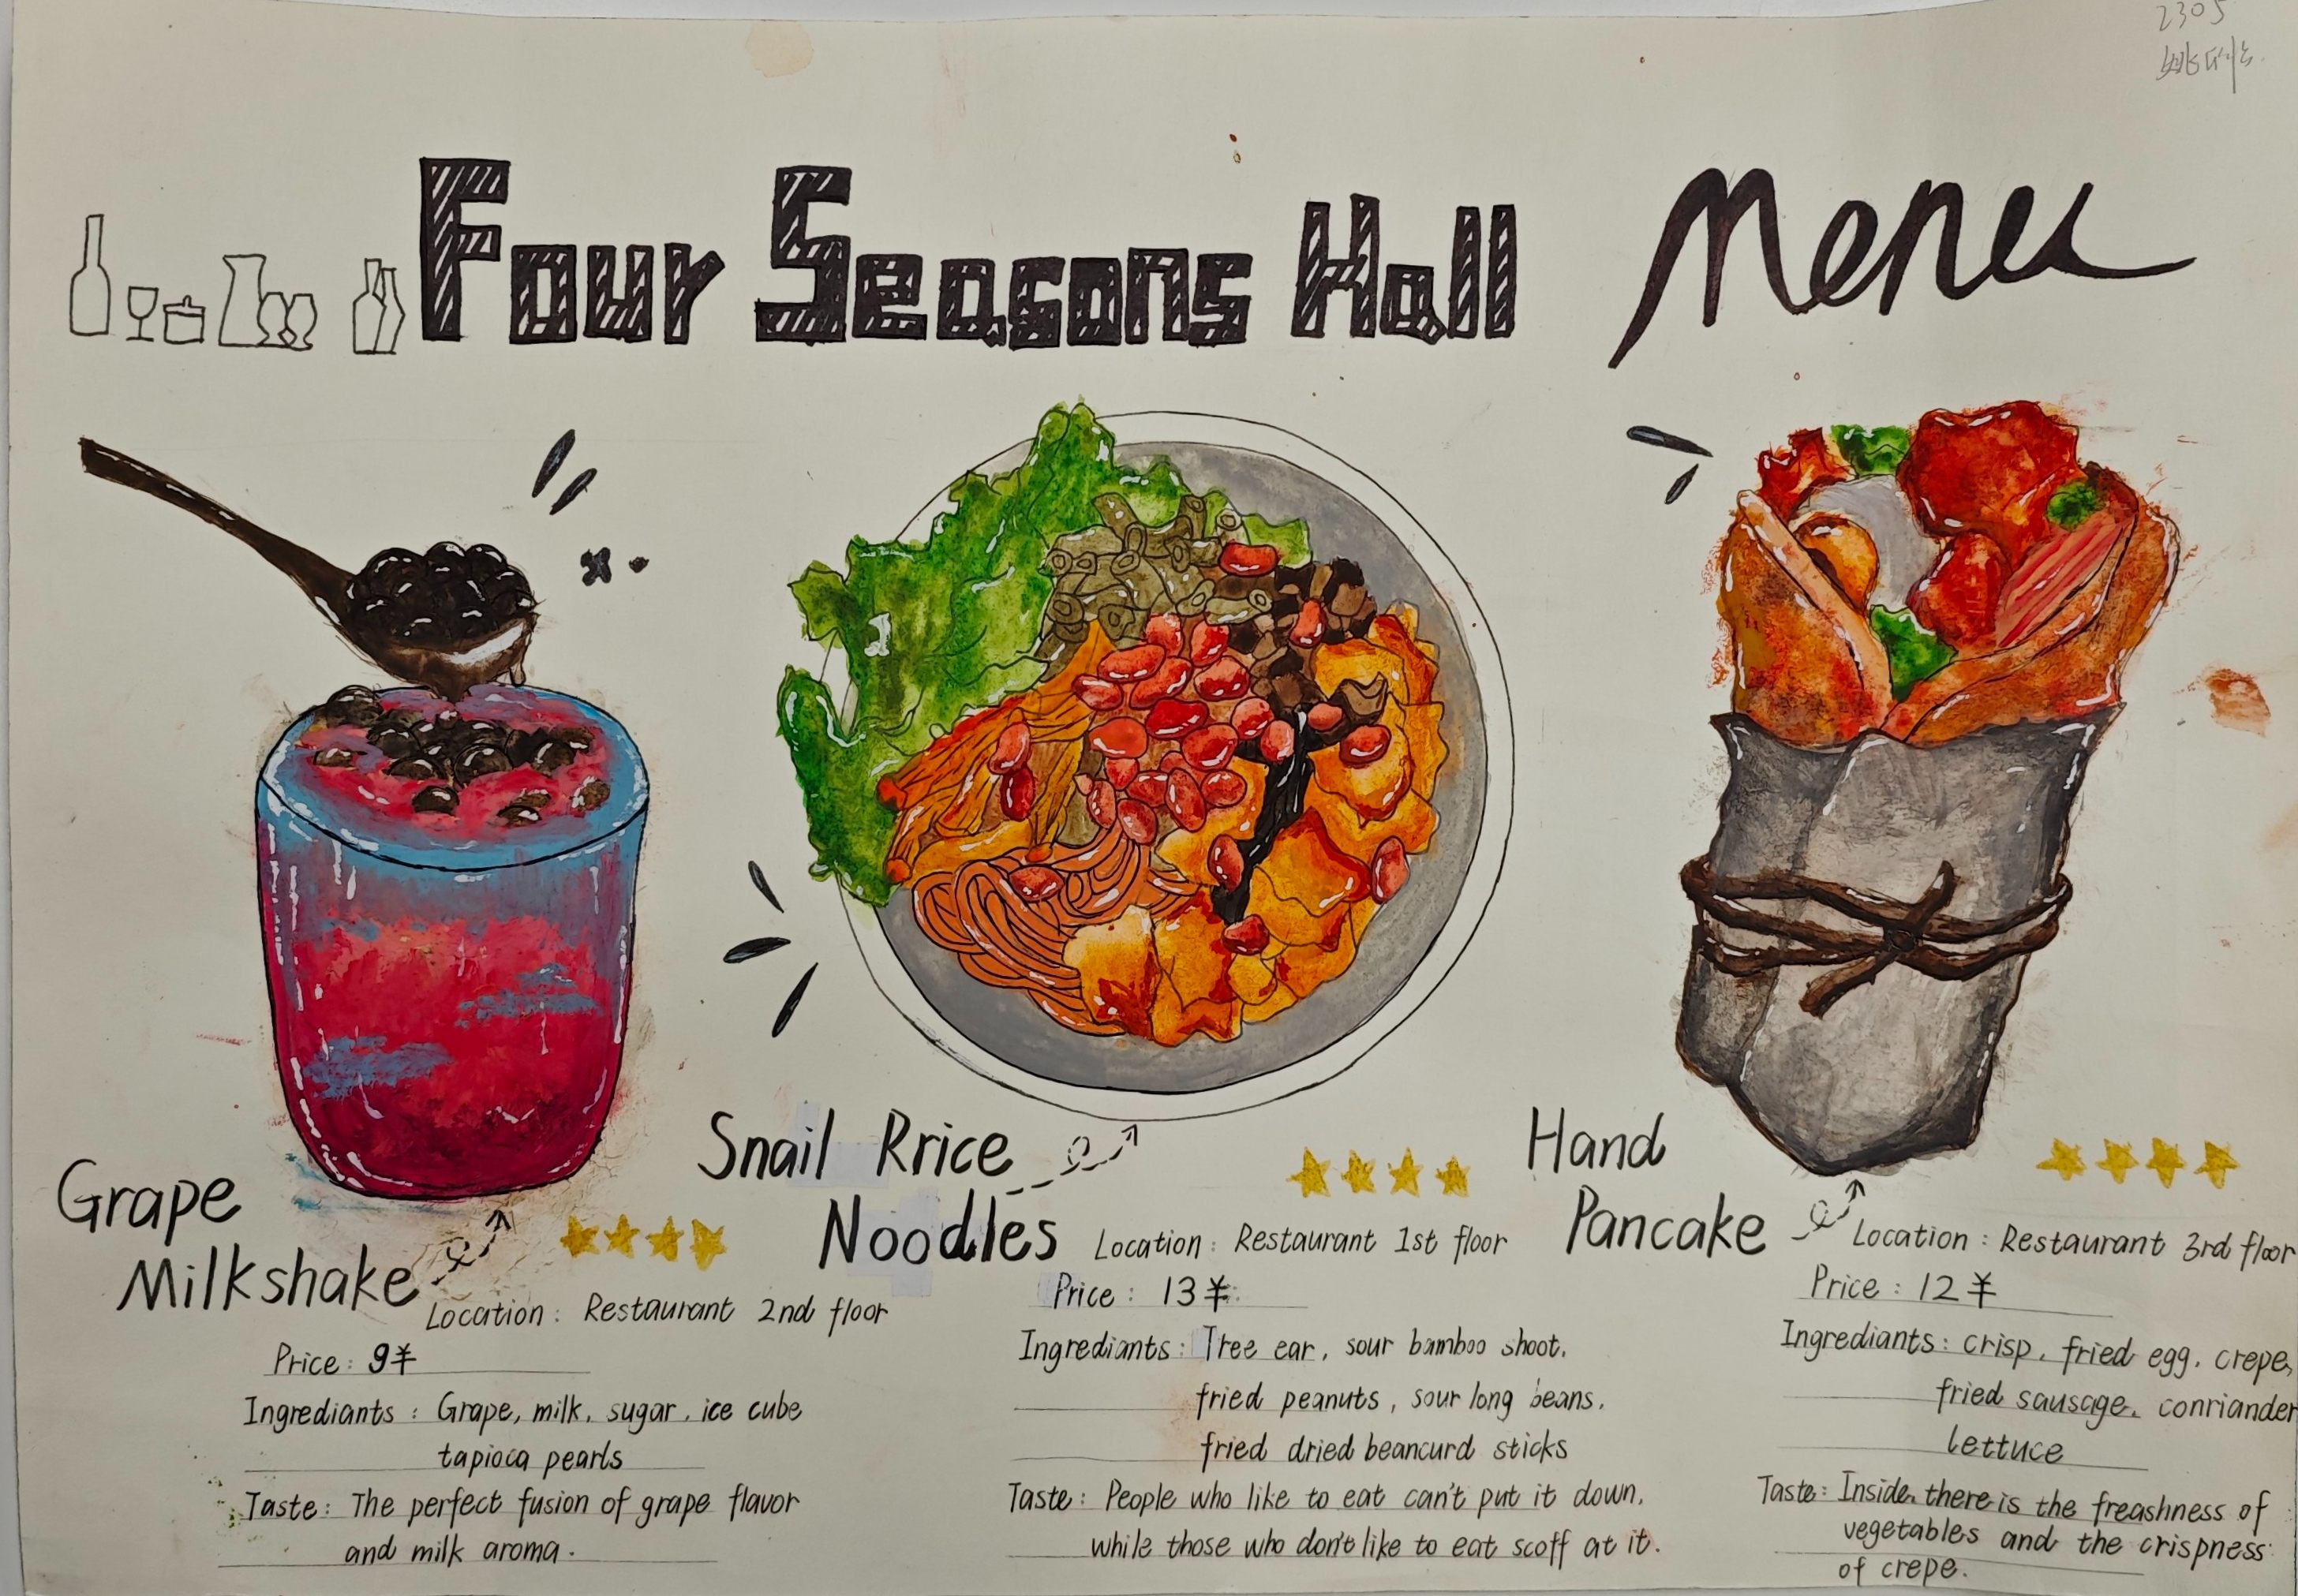 2305
Four Seasons Hall Menu
Grape
Milkshake
Location : Restaurant 2nd floor
Price : 9¥
Ingrediants : Grape, milk, sugar, ice cube
tapioca pearls
Taste : The perfect fusion of grape flavor
and milk aroma.
Snail Rrice
Noodles
Location : Restaurant 1st floor
Price : 13¥
Ingrediants : Tree ear, sour bamboo shoot.
fried peanuts, sour long beans.
fried dried beancurd sticks
Taste : People who like to eat can't put it down.
while those who don't like to eat scoff at it.
Hand
Pancake
Location : Restaurant 3rd floor
Price : 12¥
Ingrediants : crisp, fried egg, crepe,
fried sausage, conriander
lettuce
Taste : Inside, there is the freashness of
vegetables and the crispness
of crepe.